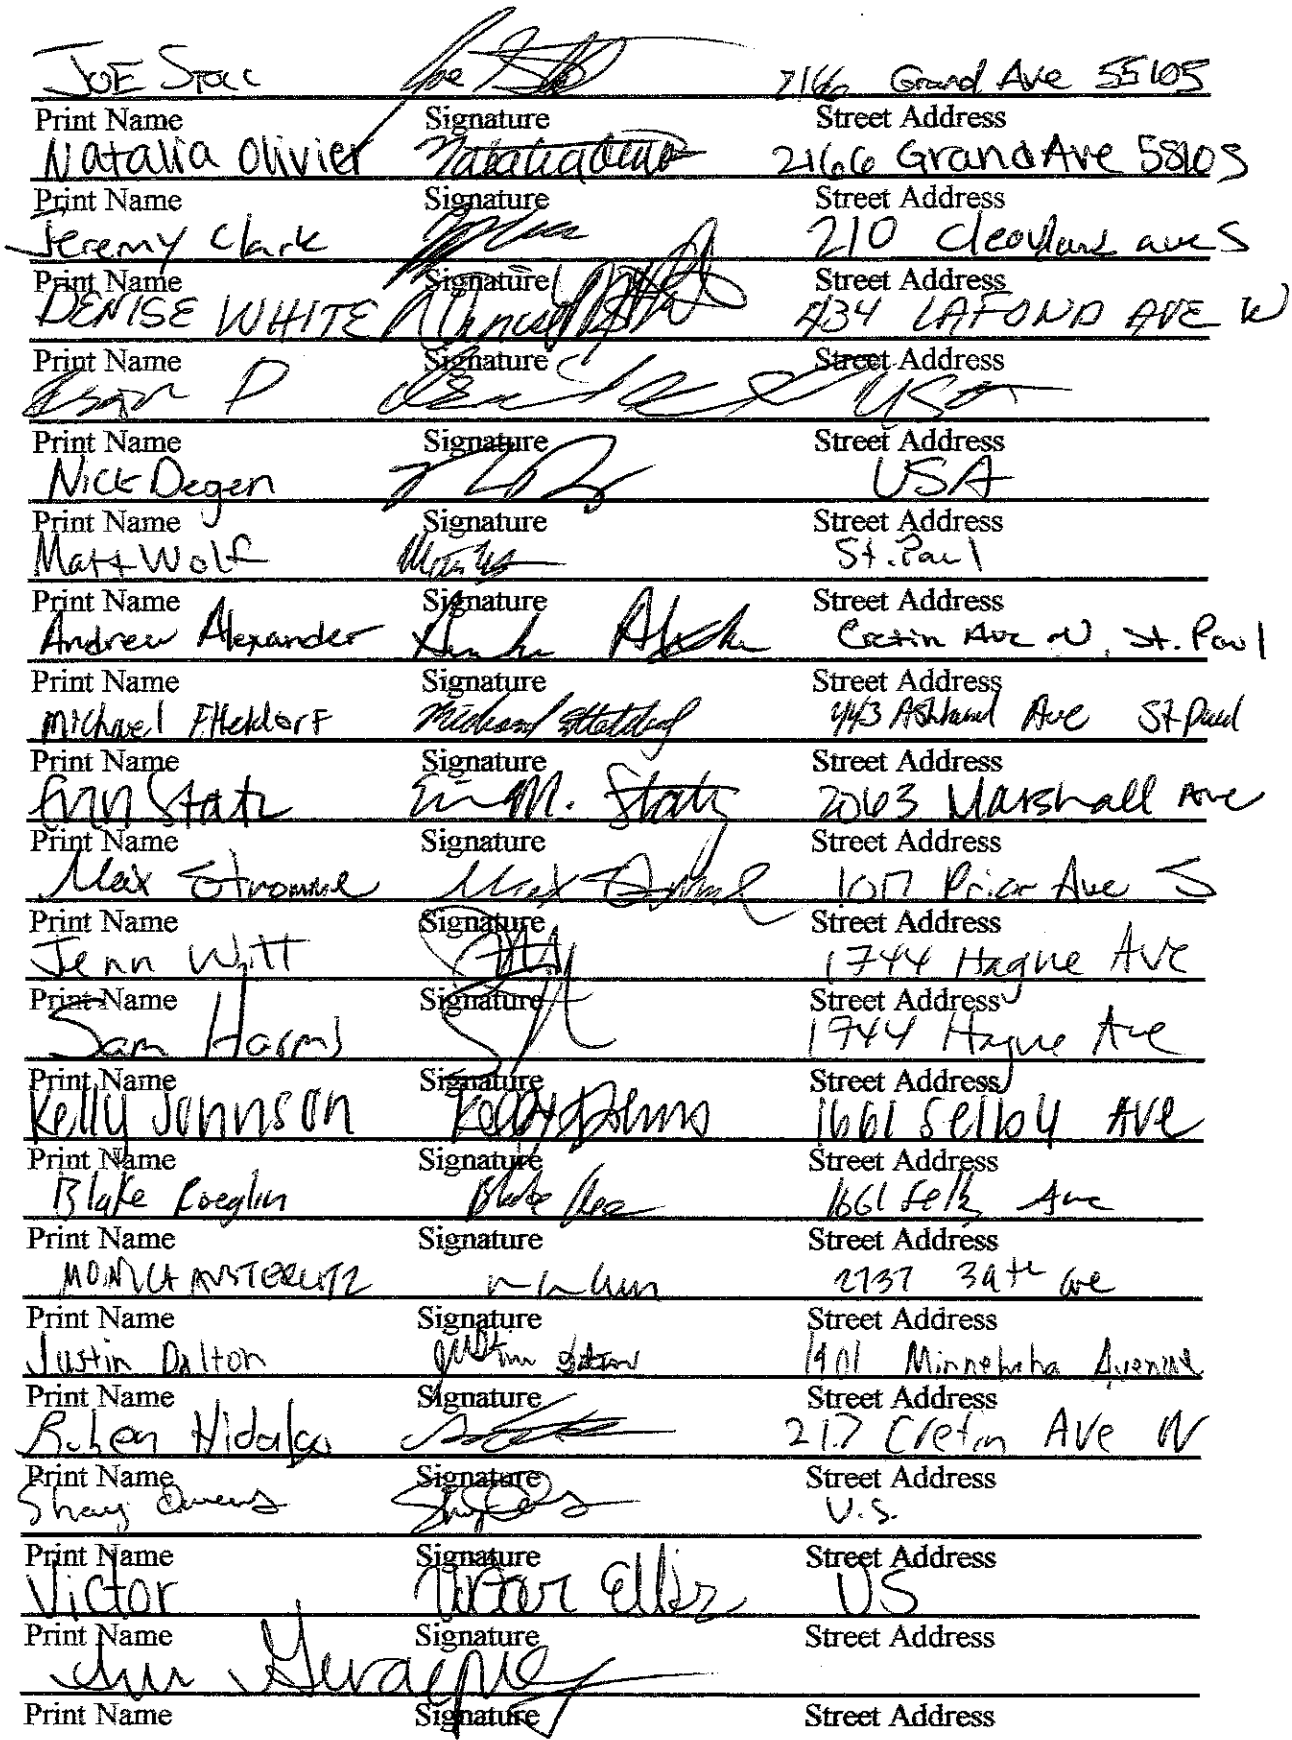 JOE STOLL Joe 2166 Grand Ave 55105
Print Name Signature Street Address
Natalia Olivier Natalia Olivier 2166 Grand Ave 55105
Print Name Signature Street Address
Jeremy Clark 210 Cleveland ave S
Print Name Signature Street Address
DENISE WHITE Denise 434 LAFOND AVE W
Print Name Signature Street Address
P USA
Print Name Signature Street Address
Nick Degen USA
Print Name Signature Street Address
Matt Wolf St. Paul
Print Name Signature Street Address
Andrew Alexander Cretin Ave N, St. Paul
Print Name Signature Street Address
Michael Michael Ashland Ave St Paul
Print Name Signature Street Address
Erin Statz Erin M. Statz 2063 Marshall Ave
Print Name Signature Street Address
Max Stromme Max Stromme 1017 Prior Ave S
Print Name Signature Street Address
Jenn Witt 1744 Hague Ave
Print Name Signature Street Address
Sam Harms 1744 Hague Ave
Print Name Signature Street Address
Kelly Johnson Kelly Johnson 1661 Selby AVE
Print Name Signature Street Address
Blake Roeglin Blake 1661 Selby Ave
Print Name Signature Street Address
MONICA AUSTERLITZ 2737 39th ave
Print Name Signature Street Address
Justin Dalton Justin Dalton 1901 Minnehaha Avenue
Print Name Signature Street Address
Ruben Hidalgo 217 Cretin Ave N
Print Name Signature Street Address
Shay Owens U.S.
Print Name Signature Street Address
Victor Victor Ellis US
Print Name Signature Street Address
Print Name Signature Street Address